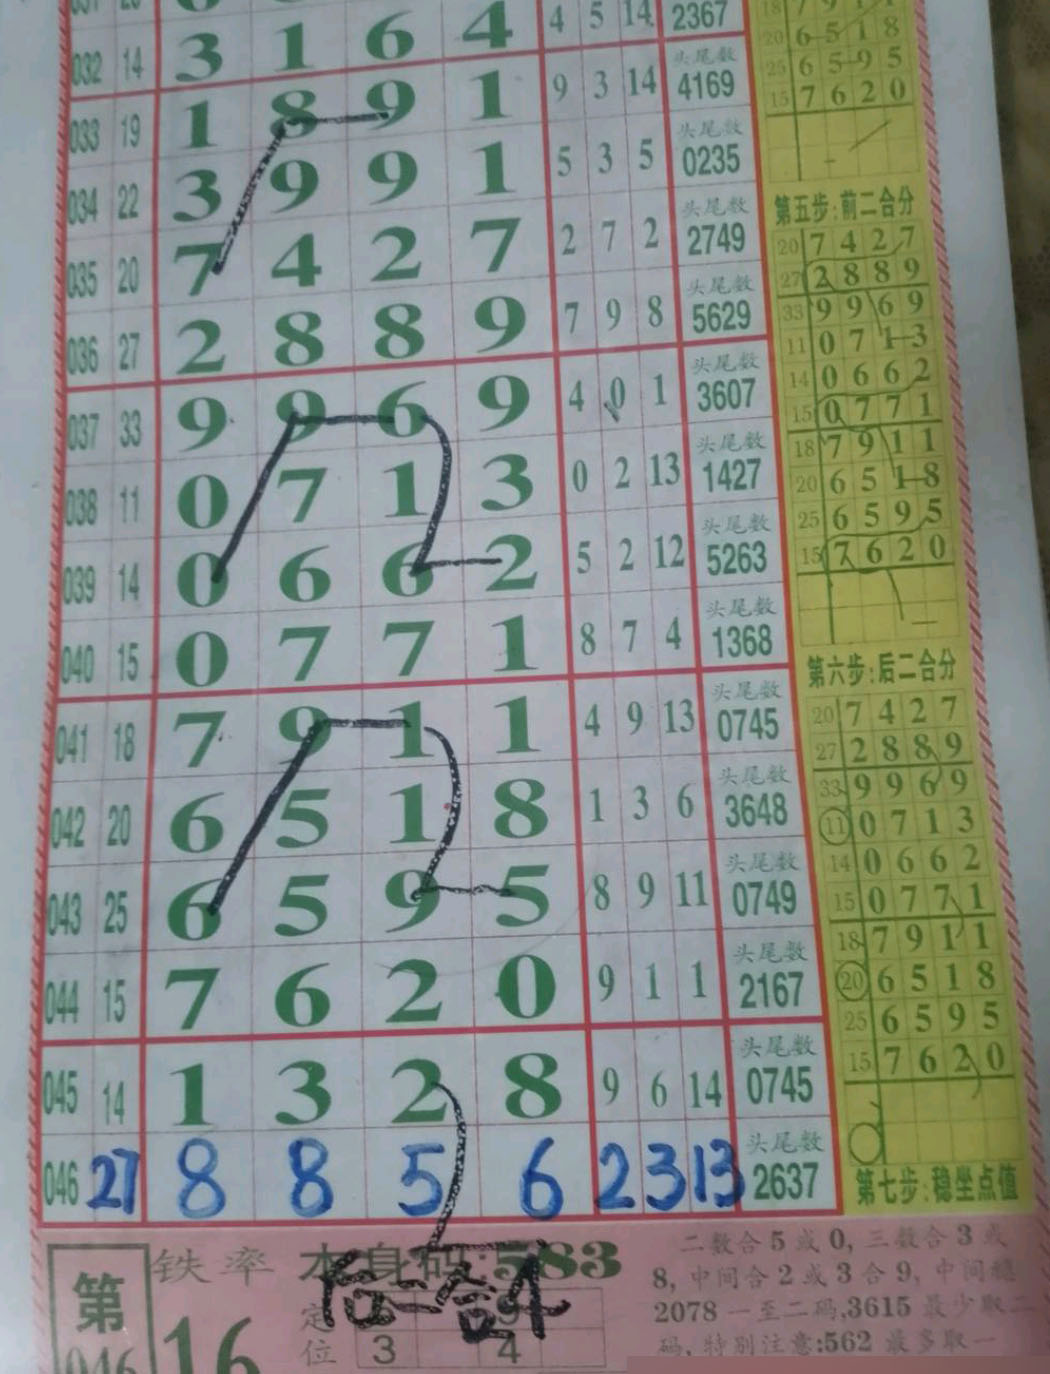 4 5 14 2367
032 14 3 1 6 4
头尾数
033 19 1 8 9 1 9 3 14 4169
头尾数
034 22 3 9 9 1 5 3 5 0235
头尾数
035 20 7 4 2 7 2 7 2 2749
头尾数
036 27 2 8 8 9 7 9 8 5629
头尾数
037 33 9 9 6 9 4 0 1 3607
头尾数
038 11 0 7 1 3 0 2 13 1427
头尾数
039 14 0 6 6 2 5 2 12 5263
头尾数
040 15 0 7 7 1 8 7 4 1368
头尾数
041 18 7 9 1 1 4 9 13 0745
头尾数
042 20 6 5 1 8 1 3 6 3648
头尾数
043 25 6 5 9 5 8 9 11 0749
头尾数
044 15 7 6 2 0 9 1 1 2167
头尾数
045 14 1 3 2 8 9 6 14 0745
头尾数
046 27 8 8 5 6 2 3 13 2637
20 6 5 1 8
25 6 5 9 5
15 7 6 2 0
第五步:前二合分
20 7 4 2 7
27 2 8 8 9
33 9 9 6 9
11 0 7 1 3
14 0 6 6 2
15 0 7 7 1
18 7 9 1 1
20 6 5 1 8
25 6 5 9 5
15 7 6 2 0
第六步:后二合分
20 7 4 2 7
27 2 8 8 9
33 9 9 6 9
11 0 7 1 3
14 0 6 6 2
15 0 7 7 1
18 7 9 1 1
20 6 5 1 8
25 6 5 9 5
15 7 6 2 0
第七步:稳坐点值
第
046
铁率
16
本身码:583
后二合4
定
位
3 4
二数合5或0,三数合3或
8,中间合2或3合9,中间稳
2078一至二码,3615最少取二
码,特别注意:562最多取一